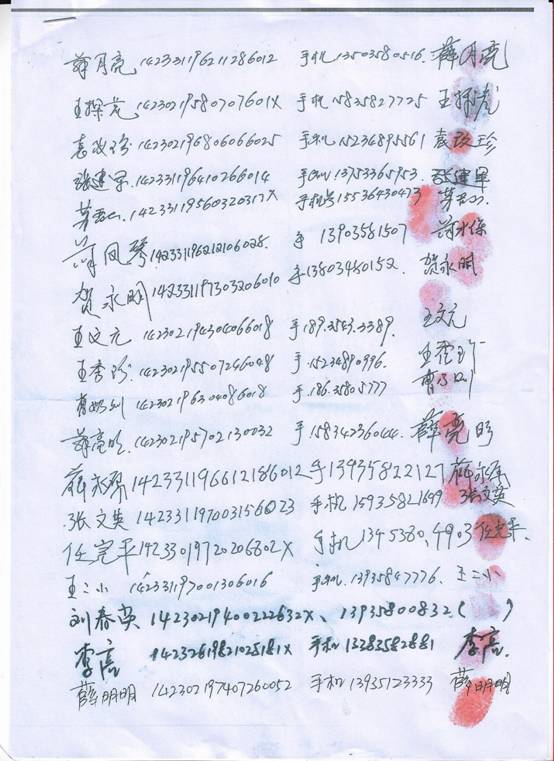 薛月亮 142331196211286012 手机 13503580516 薛月亮
王探花 14230219580707601X 手机 15835827725
袁改珍 142302196806066025 手机 15234895561 袁改珍
张建军 142331196410266014 手机 13753365753 张建军
14233119560320317X 手机号 15536430473
薛凤琴 142331196212106028 手 13903581507 薛永保
贺永明 142331197303206010 手 13803480152 贺永明
王文元 142302194304066018 手 189.3543.3389 王文元
王秀珍 142302195507246048 手 15234890996 王秀珍
142302196304086018 手 186.3580.5777
薛亮明 142302195702130032 手 15834236044 薛亮明
142331196612186012 手 13935822127
张文英 142331197003156023 手机 15935821699 张文英
任完平 14233019720206802X 手机 1345380,4903 任完平
王二小 142331197001306016 手机 13935847776 王二小
刘春英 1423021940022632X、13935800832 ( )
李亮 14232619821028181X 手机 13383582881 李亮
薛明明 142302197407260052 手机 13935123333 薛明明